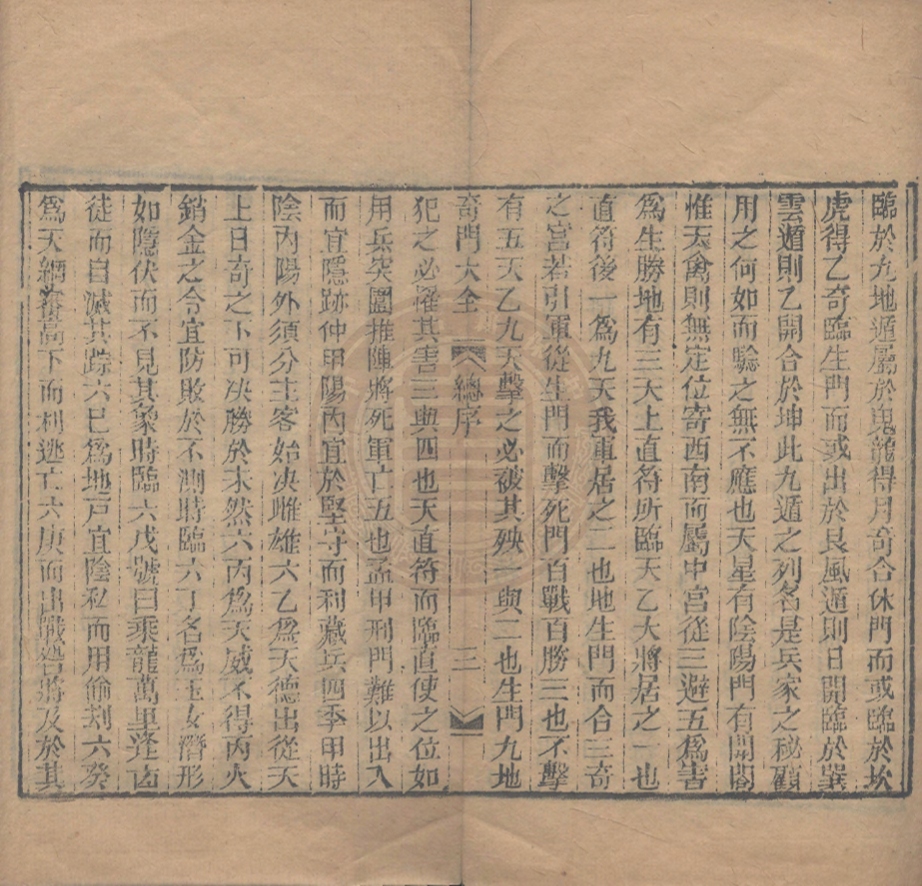 臨於九地遁屬於鬼龍得月奇合休門而或臨於坎
虎得乙奇臨生門而或出於艮風遁則日開臨於巽
雲遁則乙開合於坤此九遁之列名是兵家之秘顧
用之何如而驗之無不應也天星有陰陽門有開闔
惟天禽則無定位寄西南而屬中宮從三避五爲害
爲生勝地有三天上直符所臨天乙大將居之一也
直符後一爲九天我軍居之二也地生門而合三奇
之宮若引軍從生門而擊死門百戰百勝三也不擊
有五天乙九天擊之必被其殃一與二也生門九地
奇門大全 總序 三
犯之必懼其害三與四也天直符而臨直使之位如
用兵突圍推陣將死軍亡五也孟甲刑門難以出入
而宜隱跡仲甲陽內宜於堅守而利藏兵四季甲時
陰內陽外須分主客始決雌雄六乙爲天德出從天
上日奇之下可決勝於未然六丙爲天威不得丙火
銷金之令宜防敗於不測時臨六丁名爲玉女潛形
如隱伏而不見其象時臨六戊號曰乘龍萬里逢凶
徒而自滅其踪六巳爲地戸宜陰私而用偷刦六癸
爲天網看高下而利逃亡六庚而出戰將及於其